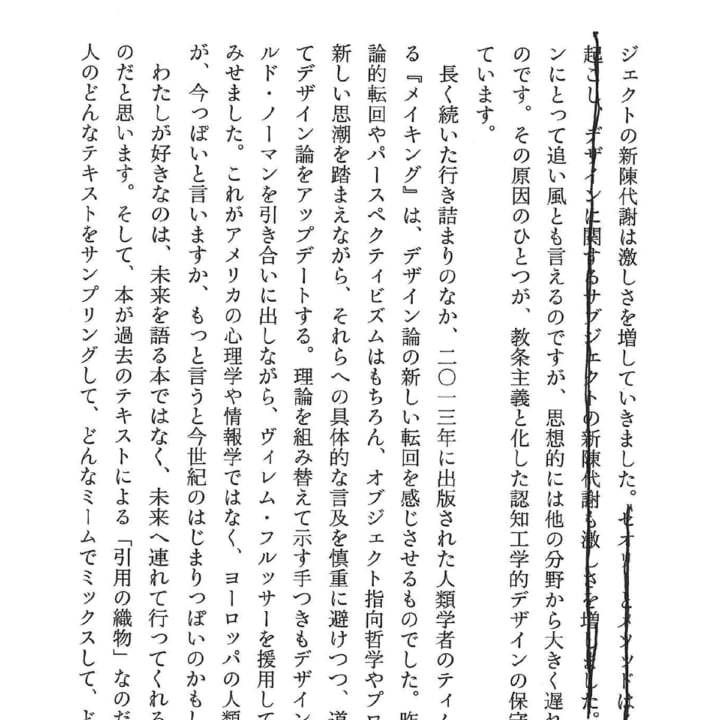 ジェクトの新陳代謝は激しさを増していきました。セオリーとメソッドは
起こし、デザインに関するサブジェクトの新陳代謝も激しさを増しました。
ンにとって追い風とも言えるのですが、思想的には他の分野から大きく遅れ
のです。その原因のひとつが、教条主義と化した認知工学的デザインの保守
ています。
長く続いた行き詰まりのなか、二〇一三年に出版された人類学者のティム
る『メイキング』は、デザイン論の新しい転回を感じさせるものでした。昨
論的転回やパースペクティビズムはもちろん、オブジェクト指向哲学やプロ
新しい思潮を踏まえながら、それらへの具体的な言及を慎重に避けつつ、道
てデザイン論をアップデートする。理論を組み替えて示す手つきもデザイン
ルド・ノーマンを引き合いに出しながら、ヴィレム・フルッサーを援用して
みせました。これがアメリカの心理学や情報学ではなく、ヨーロッパの人類
が、今っぽいと言いますか、もっと言うと今世紀のはじまりっぽいのかもし
わたしが好きなのは、未来を語る本ではなく、未来へ連れて行ってくれる
のだと思います。そして、本が過去のテキストによる「引用の織物」なのだ
人のどんなテキストをサンプリングして、どんなミームでミックスして、ど